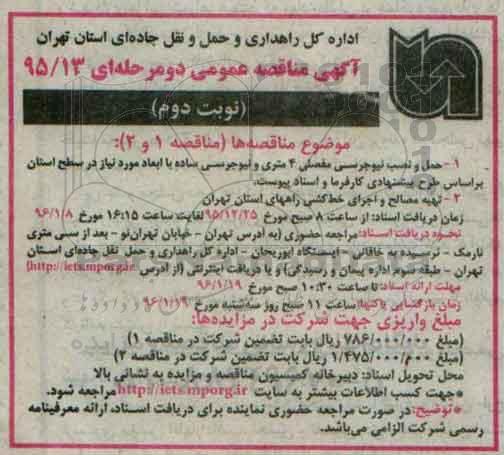 اداره کل راهداری و حمل و نقل جاده‌ای استان تهران
آگهی مناقصه عمومی دومرحله‌ای ۹۵/۱۳
(نوبت دوم)
موضوع مناقصه‌ها (مناقصه ۱ و ۲):
۱- حمل و نصب نیوجرسی مفصلی ۴ متری و نیوجرسی ساده با ابعاد مورد نیاز در سطح استان
براساس طرح پیشنهادی کارفرما و اسناد پیوست.
۲- تهیه مصالح و اجرای خط‌کشی راههای استان تهران
زمان دریافت اسناد: از ساعت ۸ صبح مورخ ۹۵/۱۲/۲۵ لغایت ساعت ۱۶:۱۵ مورخ ۹۶/۱/۸
نحوه دریافت اسناد: مراجعه حضوری (به آدرس تهران - خیابان تهران‌نو - بعد از سی متری
نارمک - نرسیده به خاقانی - ایستگاه ابوریحان - اداره کل راهداری و حمل و نقل جاده‌ای استان
تهران - طبقه سوم اداره پیمان و رسیدگی) و یا دریافت اینترنتی (از آدرس http://iets.mporg.ir)
مهلت ارائه اسناد: تا ساعت ۱۰:۳۰ صبح مورخ ۹۶/۱/۱۹
زمان بازگشایی پاکتها: ساعت ۱۱ صبح روز سه‌شنبه مورخ ۹۶/۱/۱۹
مبلغ واریزی جهت شرکت در مزایده‌ها:
(مبلغ ۷۸۶/۰۰۰/۰۰۰ ریال بابت تضمین شرکت در مناقصه ۱)
(مبلغ ۱/۴۷۵/۰۰۰/۰۰۰ ریال بابت تضمین شرکت در مناقصه ۲)
محل تحویل اسناد: دبیرخانه کمیسیون مناقصه و مزایده به نشانی بالا
*جهت کسب اطلاعات بیشتر به سایت http://iets.mporg.ir مراجعه شود.
*توضیح: در صورت مراجعه حضوری نماینده برای دریافت اسناد، ارائه معرفینامه
رسمی شرکت الزامی می‌باشد.